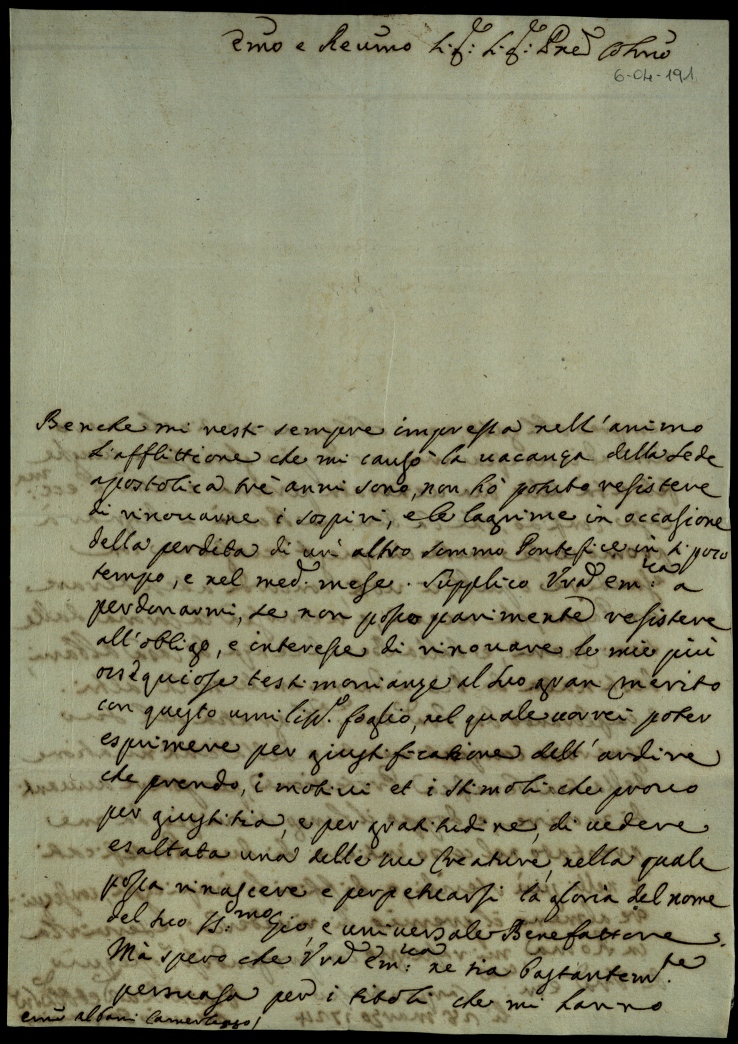 Emo e Reumo Sig: Sig: Pne Colmo
6-04-191
Benche mi resti sempre impressa nell'animo
L'afflittione che mi causò la uacanza della Sede
apostolica trè anni sono, non hò potuto resistere
di rinouarne i sospiri, e le lagrime in occasione
della perdita di un' altro sommo Pontefice in sì poco
tempo, e nel med: mese. Supplico Vra em:za a
perdonarmi, se non posso parimente resistere
all'obligo, e interesse di rinouare le mie più
ossequiose testimonianze al suo gran merito
con questo umiliss.o foglio, nel quale uorrei poter
esprimere per giustificatione dell'ardire
che prendo, i motiui et i stimoli che prouo
per giustitia, e per gratitudine, di uedere
esaltata una delle sue Creature, nella quale
possa rinascere e perpetuarsi la gloria del nome
del suo SS:mo Zio, e uniuersale Benefattore.
Mà spero che Vra em:za ne sia bastantem.te
persuasa per i titoli che mi hanno
emo albani Camerlengo